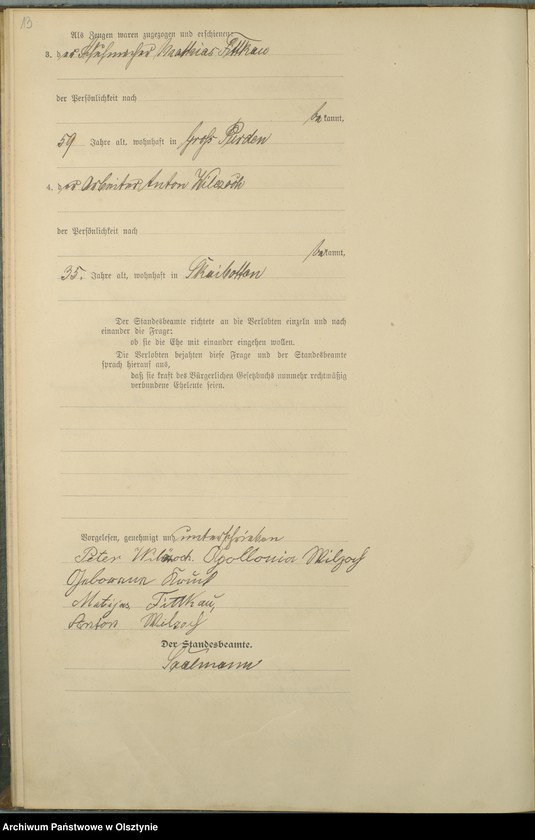 13
Als Zeugen waren zugezogen und erschienen:
3. der Schuhmacher Matthias Fittkau
der Persönlichkeit nach
be kannt,
59 Jahre alt, wohnhaft in Groß Purden
4. der Arbeiter Anton Wilczoch
der Persönlichkeit nach
be kannt,
35. Jahre alt, wohnhaft in Skaibotten
Der Standesbeamte richtete an die Verlobten einzeln und nach
einander die Frage:
ob sie die Ehe mit einander eingehen wollen.
Die Verlobten bejahten diese Frage und der Standesbeamte
sprach hierauf aus,
daß sie kraft des Bürgerlichen Gesetzbuchs nunmehr rechtmäßig
verbundene Eheleute seien.
Vorgelesen, genehmigt und unterschrieben
Peter Apollonia Wilzoch
Geborene
Matijas Fittkau,
Anton Wilzoch
Der Standesbeamte.
Saalmann
Archiwum Państwowe w Olsztynie